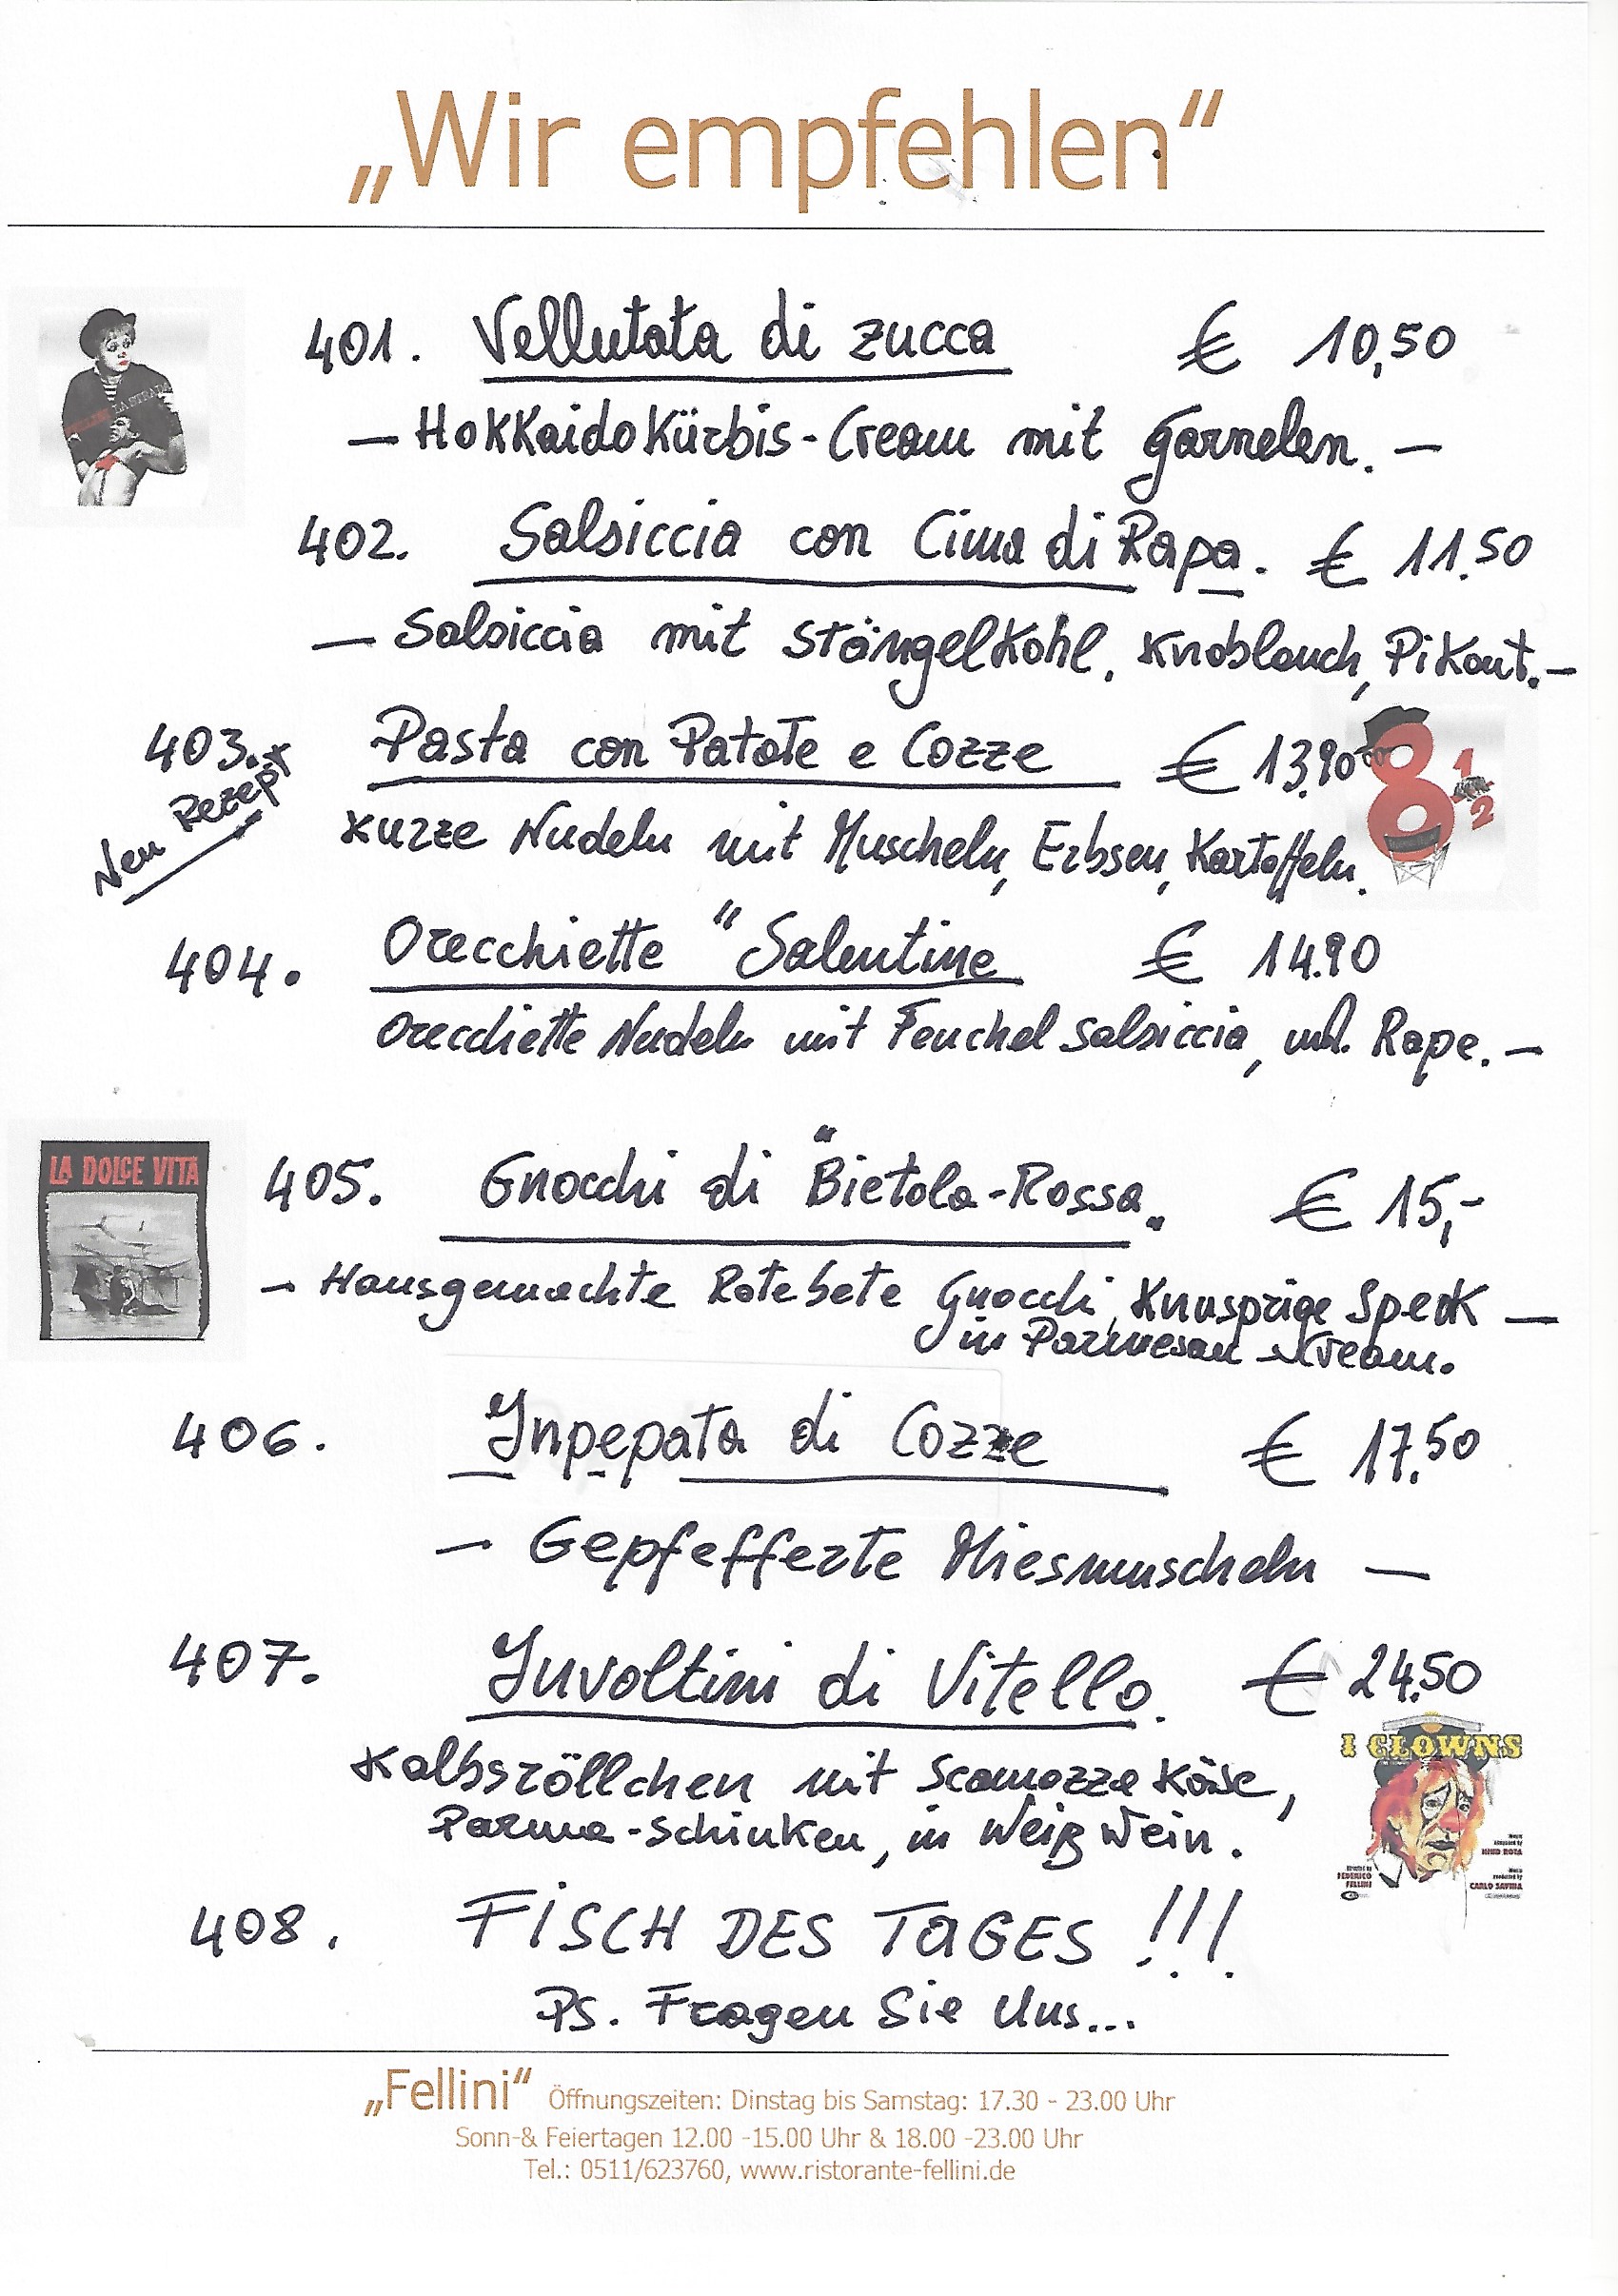 „Wir empfehlen“
401. Vellutata di zucca € 10,50
— HokkaidoKürbis-Cream mit Garnelen. —
402. Salsiccia con Cima di Rapa. € 11.50
— Salsiccia mit Stängelkohl, Knoblauch, Pikant. —
403. Pasta con Patate e Cozze € 13,90
Neu Rezept
Kurze Nudeln mit Muscheln, Erbsen, Kartoffeln.
404. Orecchiette "Salentine € 14.90
Orecchiette Nudeln mit Fenchel Salsiccia, und. Rape. —
LA DOLCE VITA
405. Gnocchi di "Bietola-Rossa" € 15,-
— Hausgemachte Rote bete Gnocchi, Knusprige Speck —
in Parmesan - Cream.
406. Inpepata di Cozze € 17.50
— Gepfefferte Miesmuscheln —
407. Involtini di Vitello. € 24.50
Kalbsröllchen mit Scamozza Käse,
Parma-Schinken, in Weiß Wein.
I CLOWNS
FEDERICO
FELLINI
NINO ROTA
CARLO SAVINA
408. FISCH DES TAGES !!!
Ps. Fragen Sie Uns...
„Fellini“ Öffnungszeiten: Dinstag bis Samstag: 17.30 - 23.00 Uhr
Sonn-& Feiertagen 12.00 -15.00 Uhr & 18.00 -23.00 Uhr
Tel.: 0511/623760, www.ristorante-fellini.de
8 1/2
LA STRADA